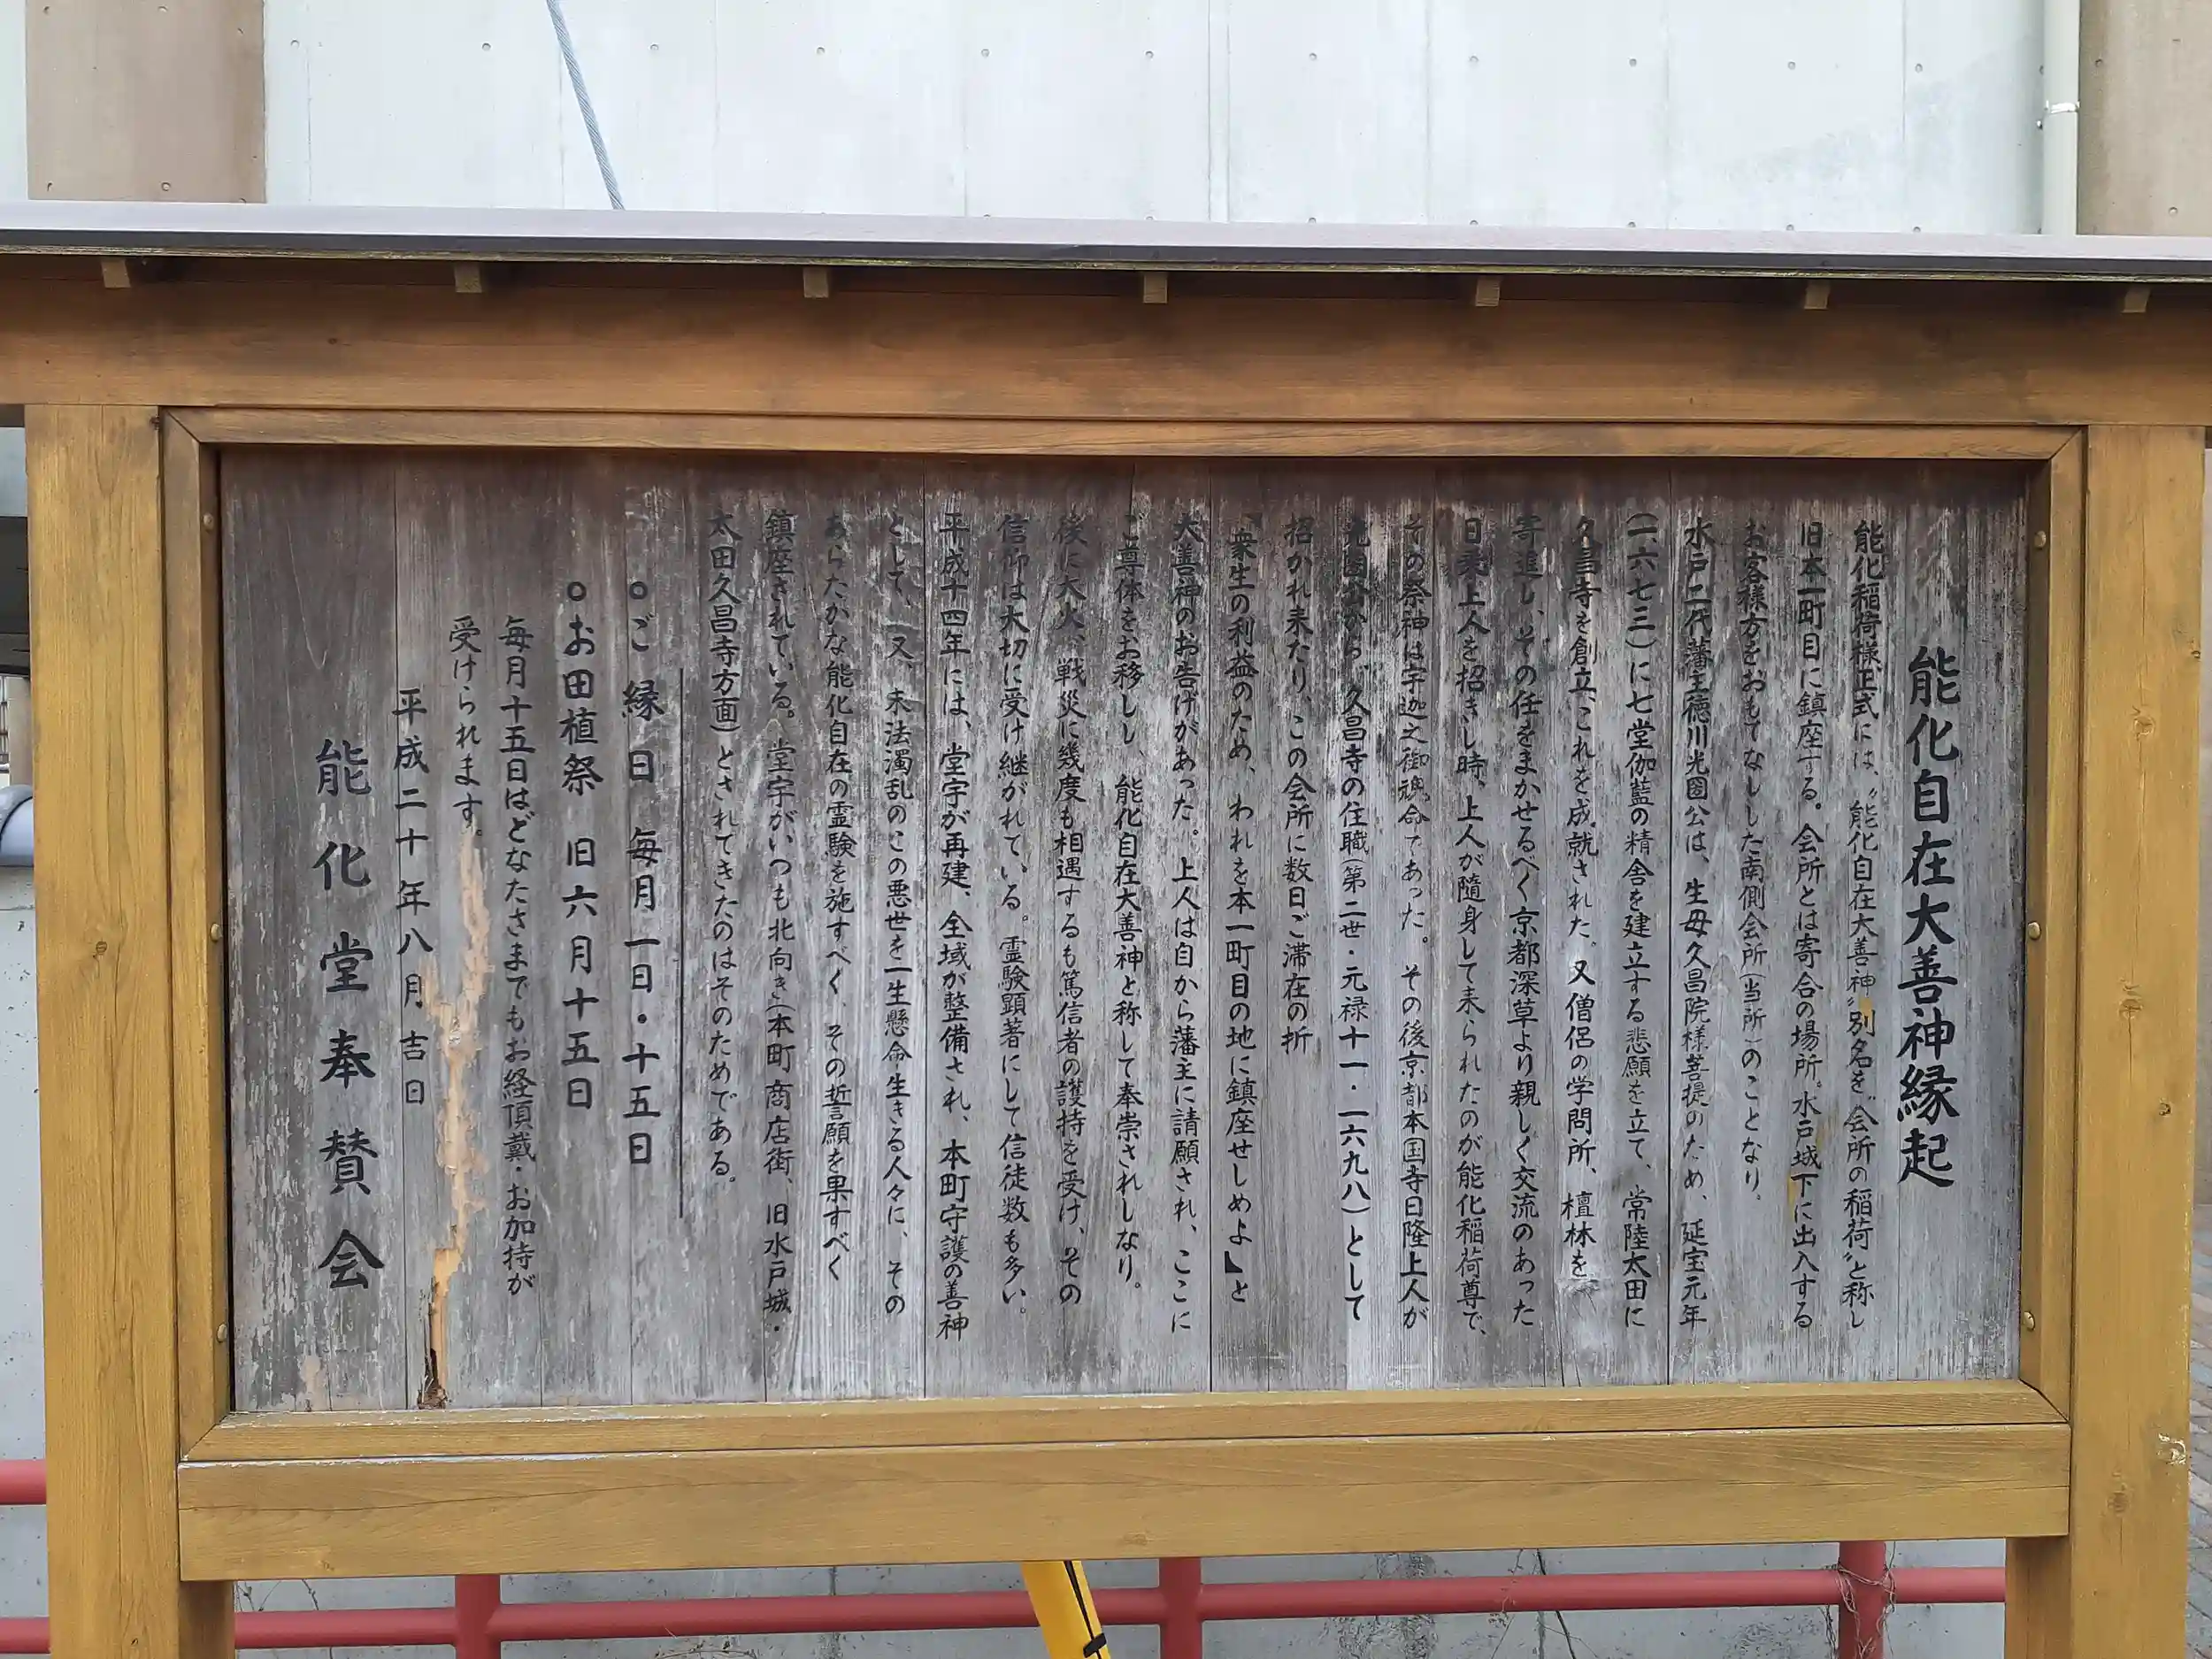 能化自在大善神縁起
能化稲荷様正式には、〝能化自在大善神〟別名を〝会所の稲荷〟と称し
旧本一町目に鎮座する。会所とは寄合の場所。水戸城下に出入する
お客様方をおもてなしした南側会所(当所)のことなり。
水戸二代藩主徳川光圀公は、生母久昌院様菩提のため、延宝元年
(一六七三)に七堂伽藍の精舎を建立する悲願を立て、常陸太田に
久昌寺を創立、これを成就された。又僧侶の学問所、檀林を
寄進し、その任をまかせるべく京都深草より親しく交流のあった
日乗上人を招きし時、上人が随身して来られたのが能化稲荷尊で、
その祭神は宇迦之御魂命であった。その後京都本国寺日隆上人が
光圀公から久昌寺の住職(第二世・元禄十一・一六九八)として
招かれ来たり、この会所に数日ご滞在の折
『衆生の利益のため、われを本一町目の地に鎮座せしめよ』と
大善神のお告げがあった。上人は自から藩主に請願され、ここに
ご尊体をお移しし、能化自在大善神と称して奉崇されしなり。
後に大火、戦災に幾度も相遇するも篤信者の護持を受け、その
信仰は大切に受け継がれている。霊験顕著にして信徒数も多い。
平成十四年には、堂宇が再建、全域が整備され、本町守護の善神
として、又、末法濁乱のこの悪世を一生懸命生きる人々に、その
あらたかな能化自在の霊験を施すべく、その誓願を果すべく
鎮座されている。堂宇がいつも北向き(本町商店街、旧水戸城・
太田久昌寺方面)とされてきたのはそのためである。
○ご縁日 毎月一日・十五日
○お田植祭 旧六月十五日
毎月十五日はどなたさまでもお経頂戴・お加持が
受けられます。
平成二十年八月吉日
能化堂奉賛会